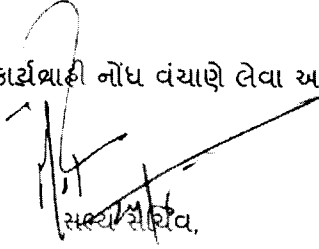 કાર્યવાહી નોંધ વંચાણે લેવા અ
સભ્ય સચિવ,